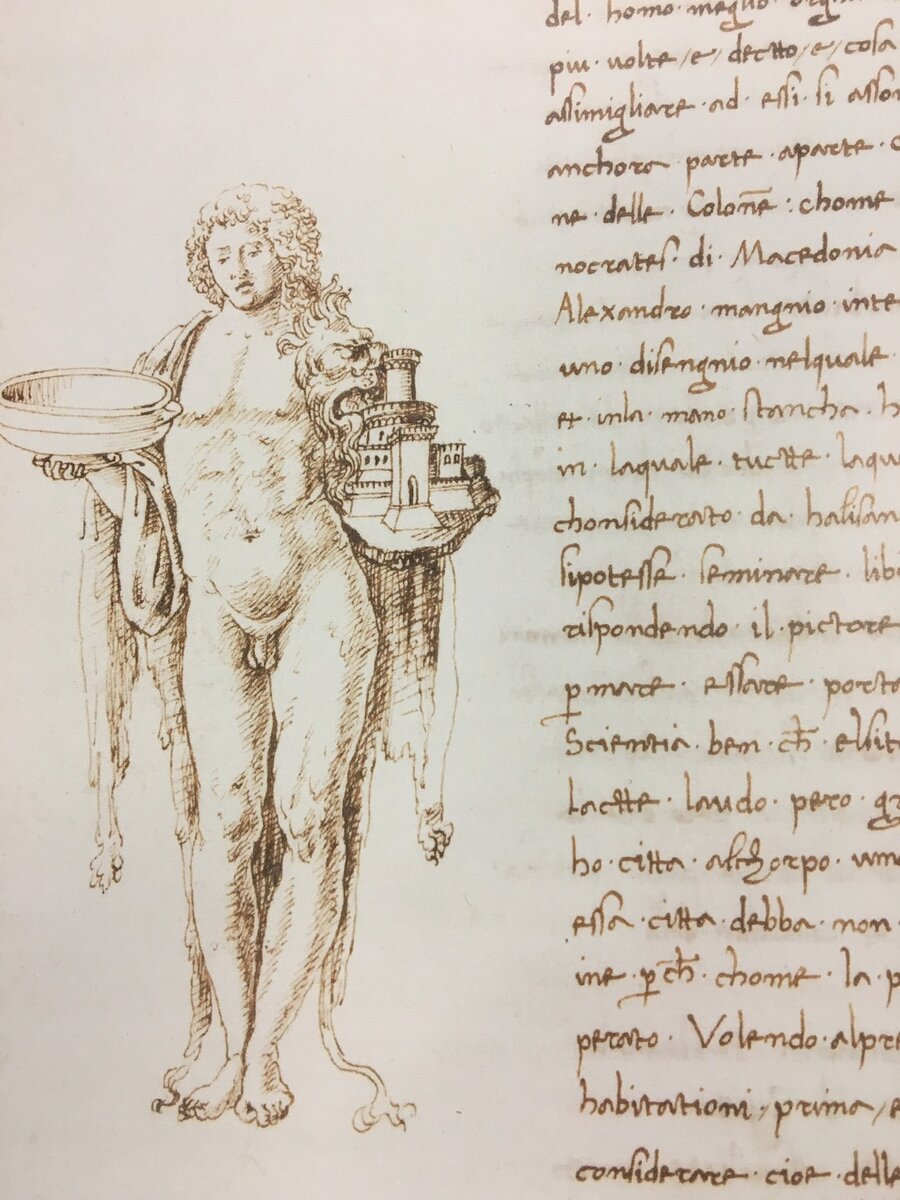 del · homo · meglio
piu · volte / e / dectto / e / cosa
assimigliare · ad · essi · si
anchora parte aparte ·
ne · delle · Colonē : chome
nocrates · di · Macedonia
Alexandro · mangnio · inte
uno · disengnio · nelquale
et · inla · mano · stancha · h
in · laquale · tuctte · laqu
chonsiderato · da · halisan
sipotesse · seminare · lib
rispondendo · il · pictore
p̱mare · essare · porto
Scientia · ben · ch̄ ·
Lactte · laudo · pero ·
ho · citta · alchorpo ·
essa · citta · debba · non ·
ine · p̱ch̄ · chome · la · p
perato · Volendo · alpre
habitationi / prima / e
considerare · cioe · delle